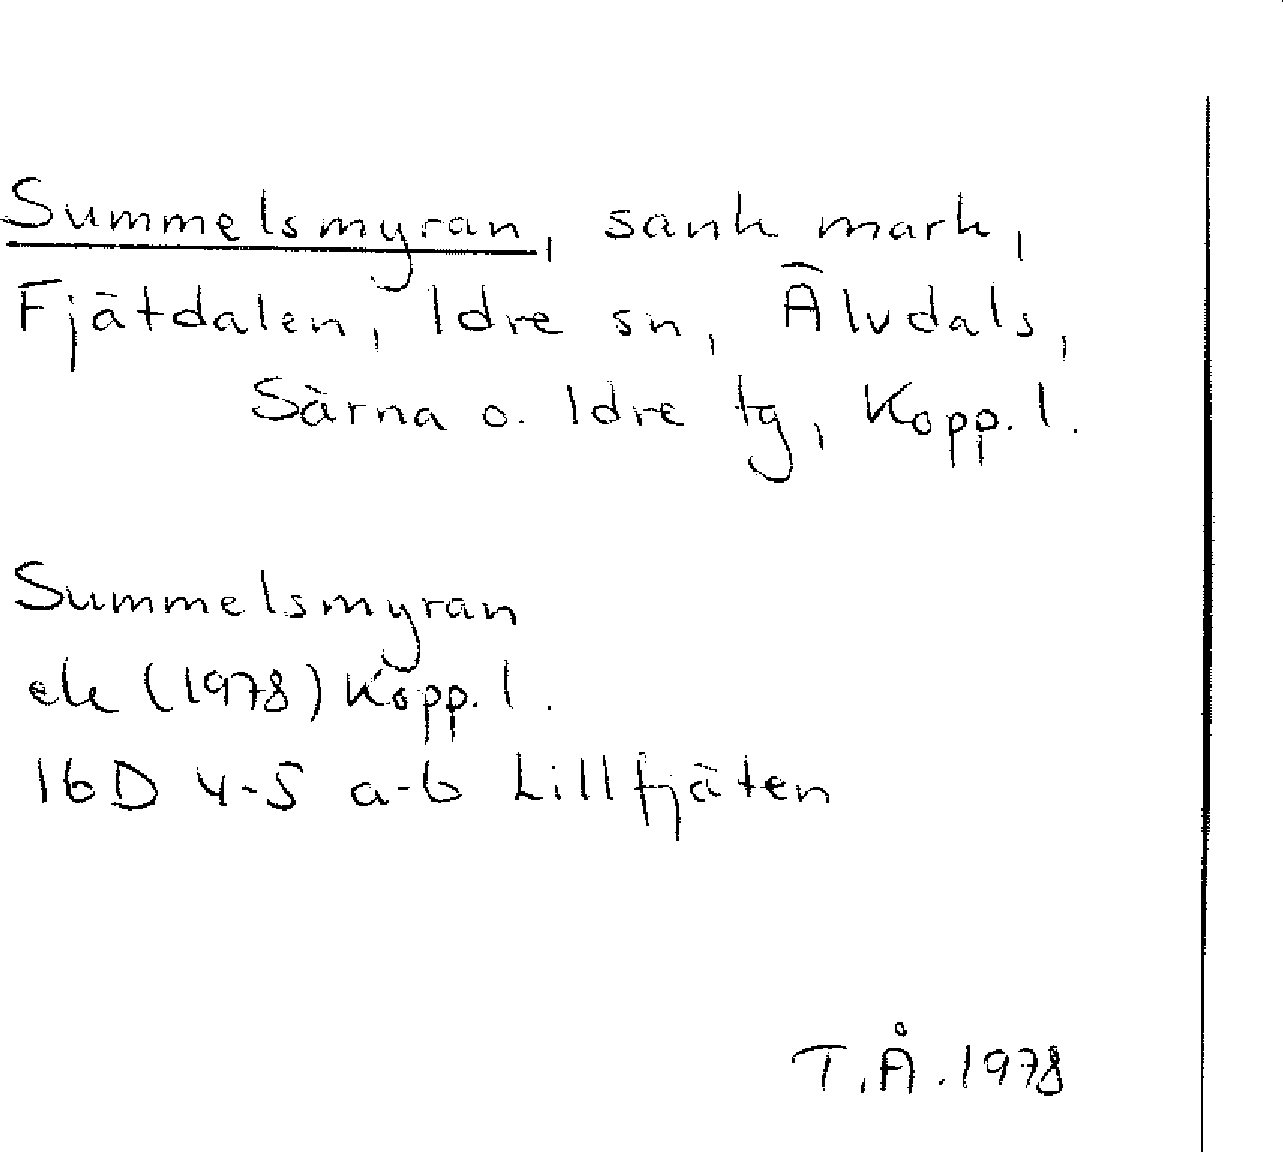 Summelsmyran, sank mark,
Fjätdalen, Idre sn, Älvdals,
Särna o. Idre tg, Kopp. l.
Summelsmyran
ek (1978) Kopp. l.
16D 4-5 a-b Lillfjäten
T.Å. 1978